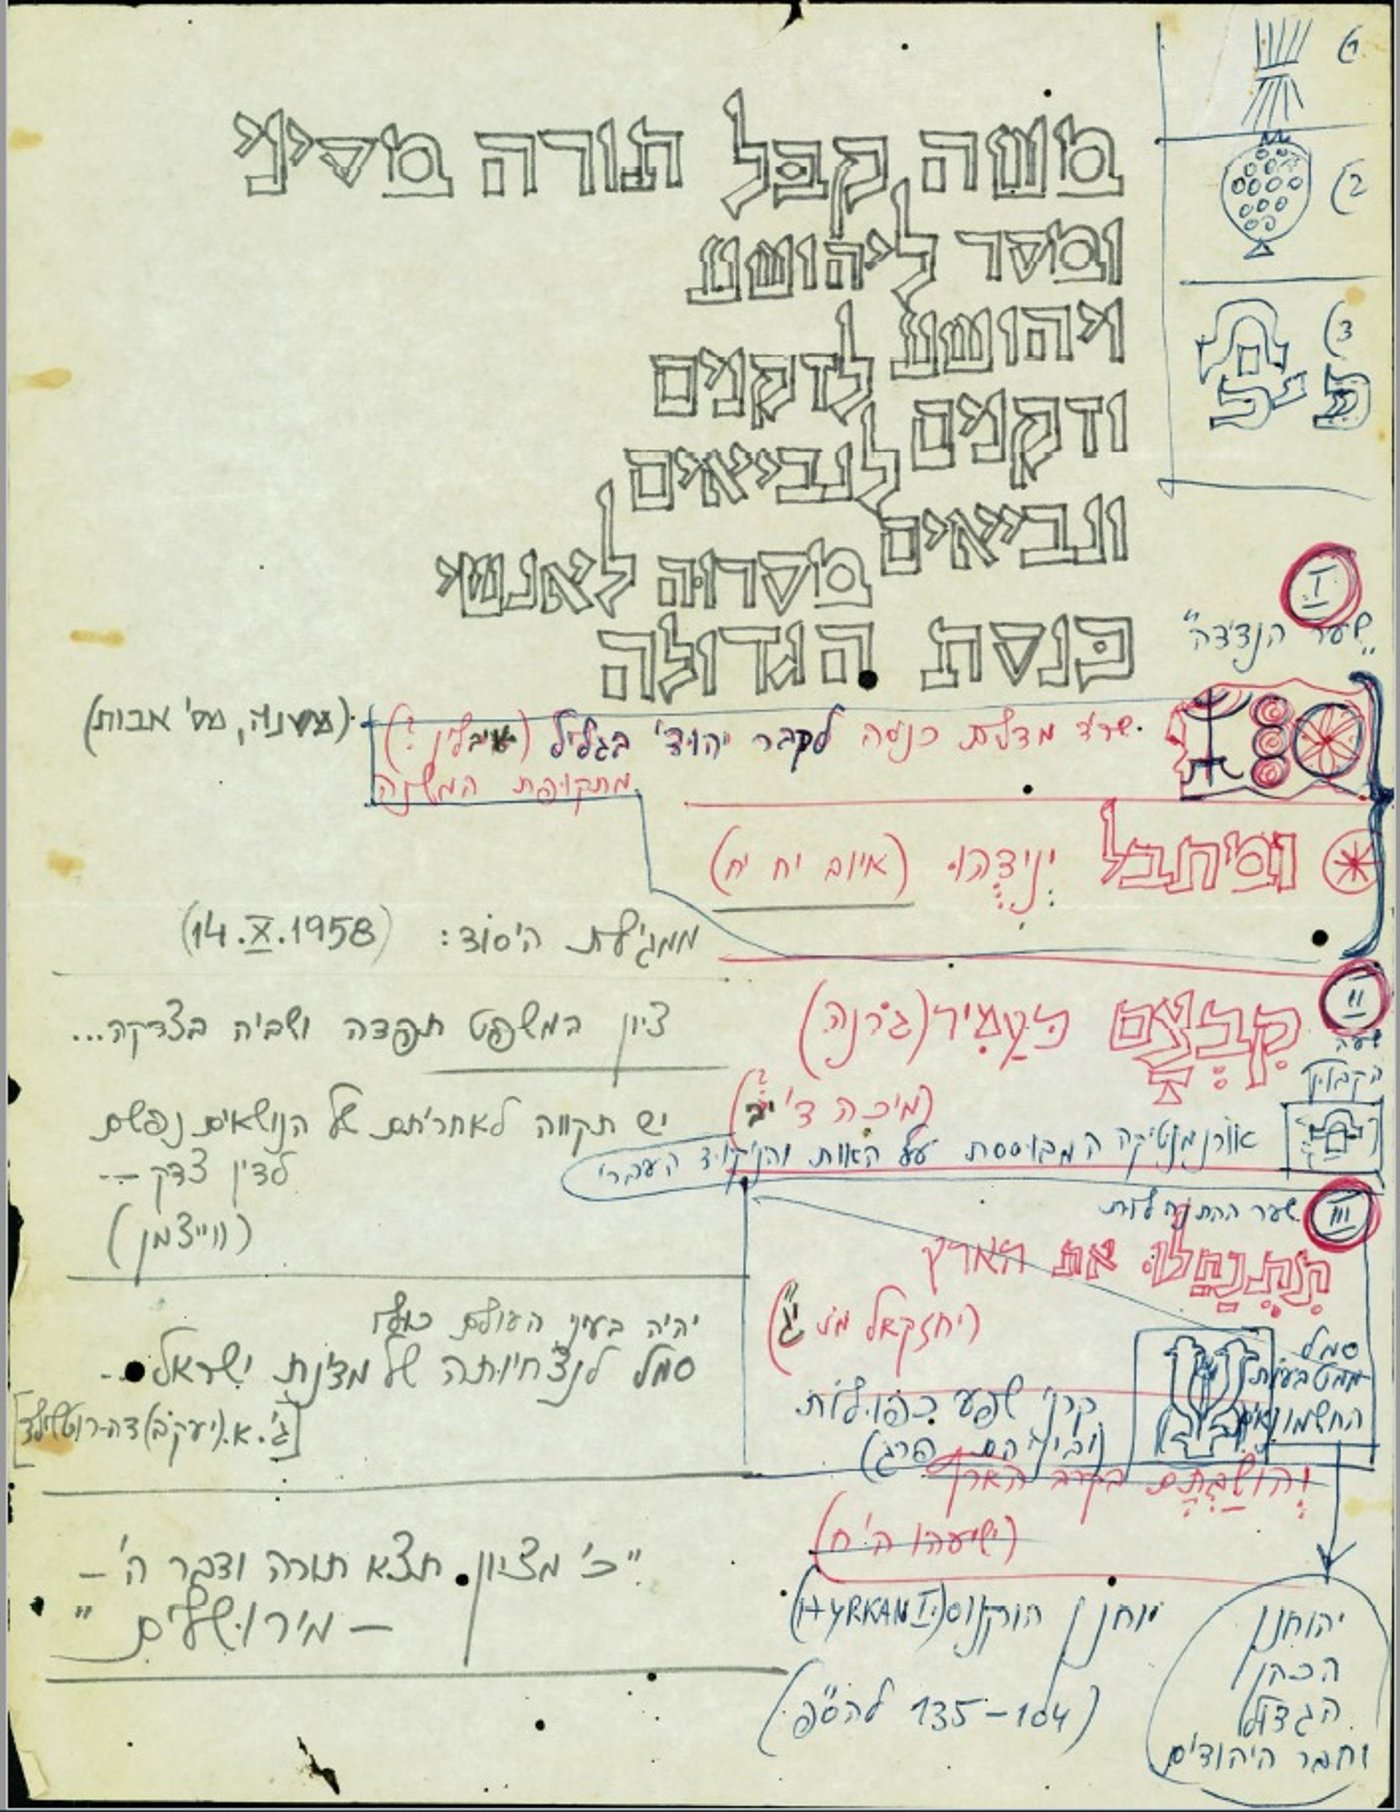 (1
(2
(3
משה קבל תורה מסיני
ומסר ליהושע
ויהושע לזקנים
וזקנים לנביאים
ונביאים מסרוה לאנשי
כנסת הגדולה
(משנה, מס' אבות)
I
"שער הנדידה"
שריד מדלת כניסה לקבר יהודי בגליל
מתקופת המשנה
ומתבל יְנִידֻּהוּ (איוב יח יח)
ממגילת היסוד: (14.X.1958)
ציון במשפט תפדה ושביה בצדקה...
יש תקווה לאחריתם של הנושאים נפשם
לדין צדק --
(וייצמן)
יהיה בעיני העולם כולו
סמל לנצחיותה של מדינת ישראל --
[ג'. א. (יעקב) דה-רוטשילד]
"כי מציון תצא תורה ודבר ה' –
– מירושלים"
II
שער
הקבוץ
קִבְּצָם כֶּעָמִיר (גרנה)
(מיכה ד' יב)
אורנמנטיקה המבוססת על האות והניקוד העברי
III
שער ההתנחלות
תִּתְנַחֲלוּ את הארץ
(יחזקאל מז יג)
סמל
ממטבעות
החשמונאים
קרני שפע כפולות
(וביניהם פרג)
וְהוּשַׁבְתֶּם בקרב הארץ
(ישיעהו ה' ח)
יוחנן הורקנוס (HYRKAN I)
(135–104 לפסה"נ)
יהוחנן
הכהן
הגדול
וחבר היהודים